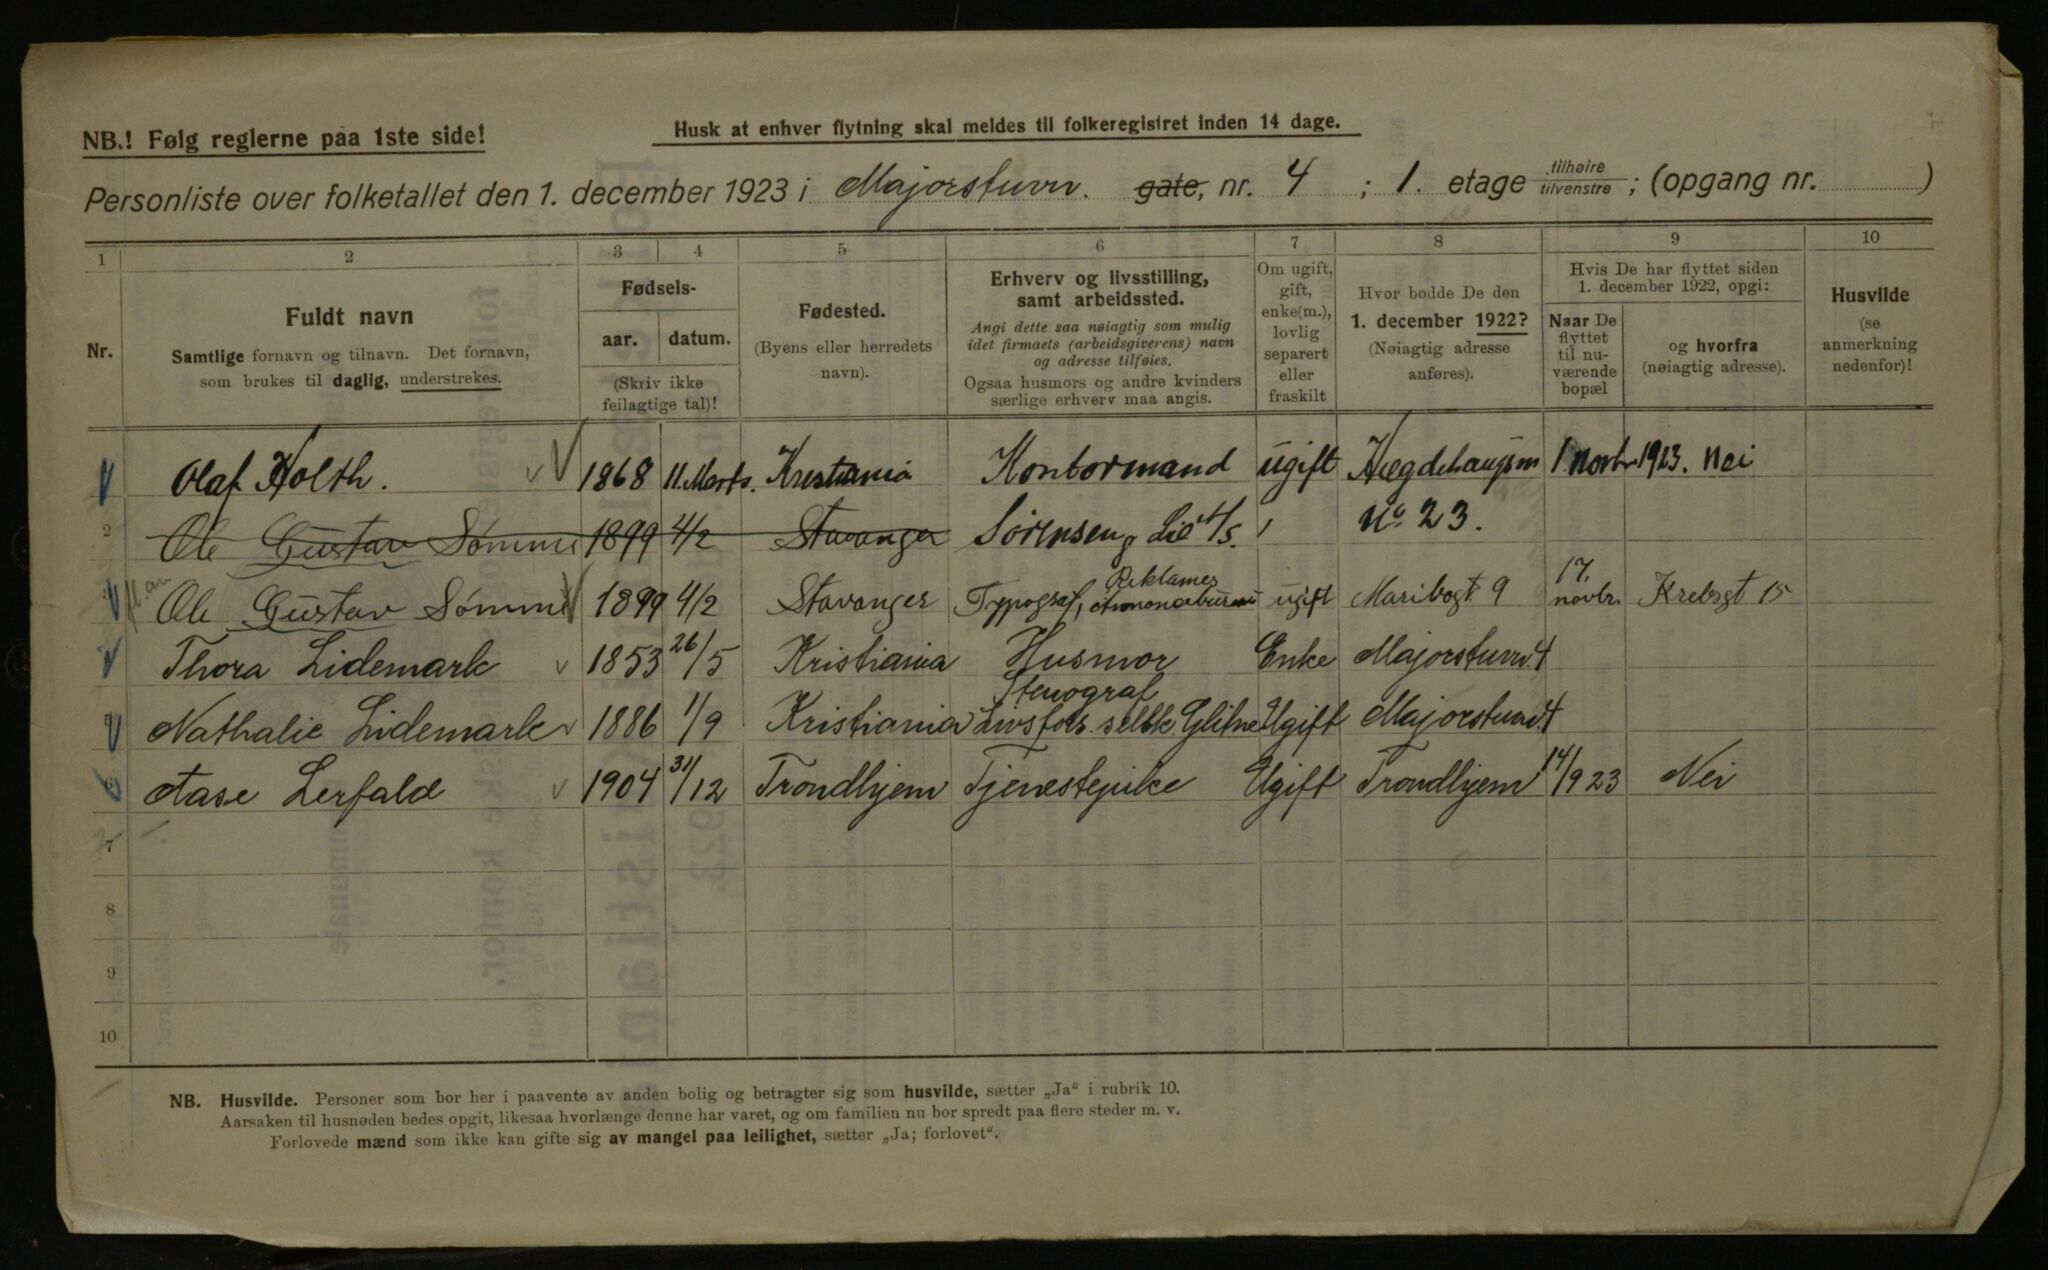 NB.! Følg reglerne paa 1ste side!
Husk at enhver flytning skal meldes til folkeregistret inden 14 dage.
Personliste over folketallet den 1. december 1923 i Majorstuvn. gate, nr. 4 ; 1. etage tilhøire tilvenstre ; (opgang nr. )
1 2 3 4 5 6 7 8 9 10
Nr.
Fuldt navn
Samtlige fornavn og tilnavn. Det fornavn,
som brukes til daglig, understrekes.
Fødsels-
aar. datum.
(Skriv ikke
feilagtige tal)!
Fødested.
(Byens eller herredets
navn).
Erhverv og livsstilling,
samt arbeidssted.
Angi dette saa nøiagtig som mulig
idet firmaets (arbeidsgiverens) navn
og adresse tilføies.
Ogsaa husmors og andre kvinders
særlige erhverv maa angis.
Om ugift,
gift,
enke(m.),
lovlig
separert
eller
fraskilt
Hvor bodde De den
1. december 1922?
(Nøiagtig adresse
anføres).
Hvis De har flyttet siden
1. december 1922, opgi:
Naar De
flyttet
til nu-
værende
bopæl
og hvorfra
(nøiagtig adresse).
Husvilde
(se
anmerkning
nedenfor)!
Olaf Holth. 1868 11. Marts. Kristiania Kontormand ugift Hægdehaugsvn 1 novbr 1923. Nei
2 Ole Gustav Sømme 1899 4/2 Stavanger Sørensen og Lie A/S. No. 23.
Ole Gustav Sømme 1899 4/2 Stavanger Typograf, Reklames ugift Maribogt 9 17. novbr. Krebsgt 15
Thora Lidemark 1853 26/5 Kristiania Husmor Enke Majorstuvn. 4
Stenograf
Nathalie Lidemark 1886 1/9 Kristiania Livsfors. selsk. Glitne Ugift Majorstuvn 4
6 Aase Lerfald 1904 31/12 Trondhjem Tjenestepike Ugift Trondhjem 14/9 23 Nei
7
8
9
10
NB. Husvilde. Personer som bor her i paavente av anden bolig og betragter sig som husvilde, sætter „Ja“ i rubrik 10.
Aarsaken til husnøden bedes opgit, likesaa hvorlænge denne har varet, og om familien nu bor spredt paa flere steder m. v.
Forlovede mænd som ikke kan gifte sig av mangel paa leilighet, sætter „Ja; forlovet“.